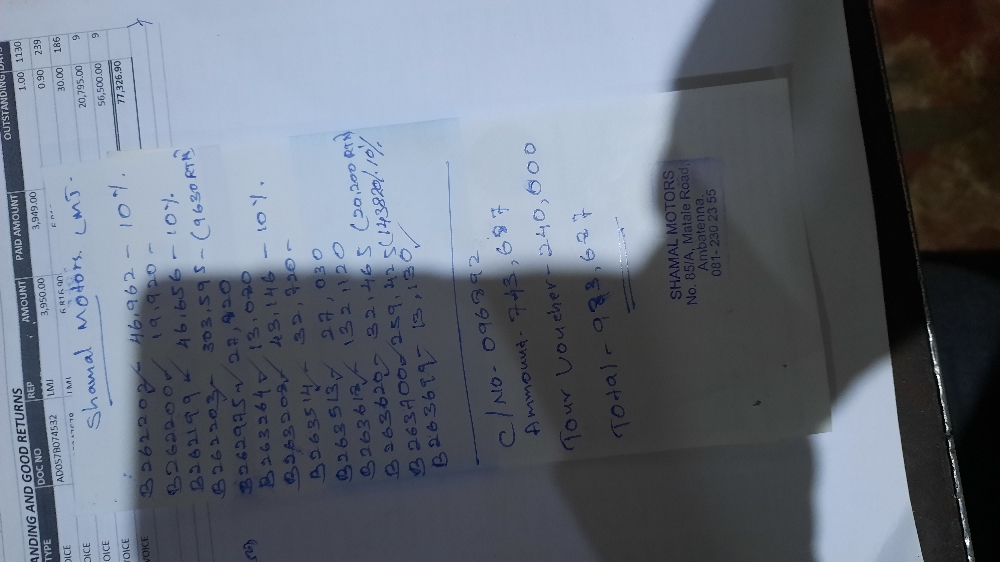 ANDING AND GOOD RETURNS
TYPE DOC NO REP AMOUNT PAID AMOUNT OUTSTANDING DAYS
OICE AD057B074532 LMJ 3,950.00 3,949.00 1.00 1130
0.90 239
OICE 30.00 186
OICE 20,795.00 9
VOICE 56,500.00 9
VOICE 77,326.90
Shamal Motors. LMJ.
B262202 46,962 - 10%
B262200 19,920 -
B262199 46,656 - 10%
B262203 303,595 - (9630 RTN)
B262975 27,820
B263264 13,020
B263202 43,146 - 10%.
B263514 - 32,720 -
B263513 27,030
B263613 132,120
B263620 32,465 (20,200 RTN)
B263700 259,425 (14382)/10%
B263699 - 13,130
C/NO - 096892
Ammount - 743,687
Tour Voucher - 240,000
Total - 983,687
SHAMAL MOTORS
No. 85/A, Matale Road,
Ambatenna.
081- 230 23 55